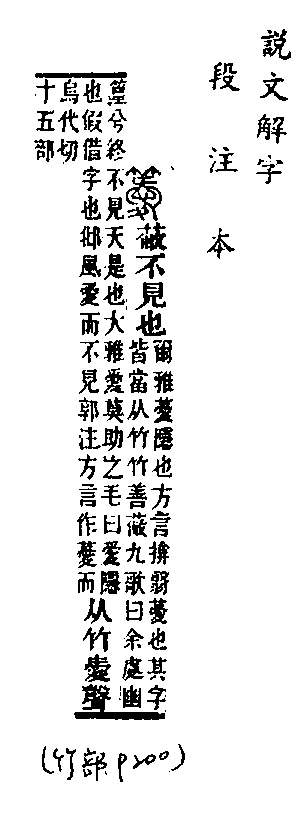 説文解字
段注本
蔽不見也
爾雅薆隱也方言揜翳薆也其字
皆當从竹竹善蔽九歌曰余處幽
篁兮終不見天是也大雅愛莫助之毛曰愛隱
也假借字也邶風愛而不見郭注方言作薆而
从竹愛聲
烏代切
十五部
(竹部 P200)